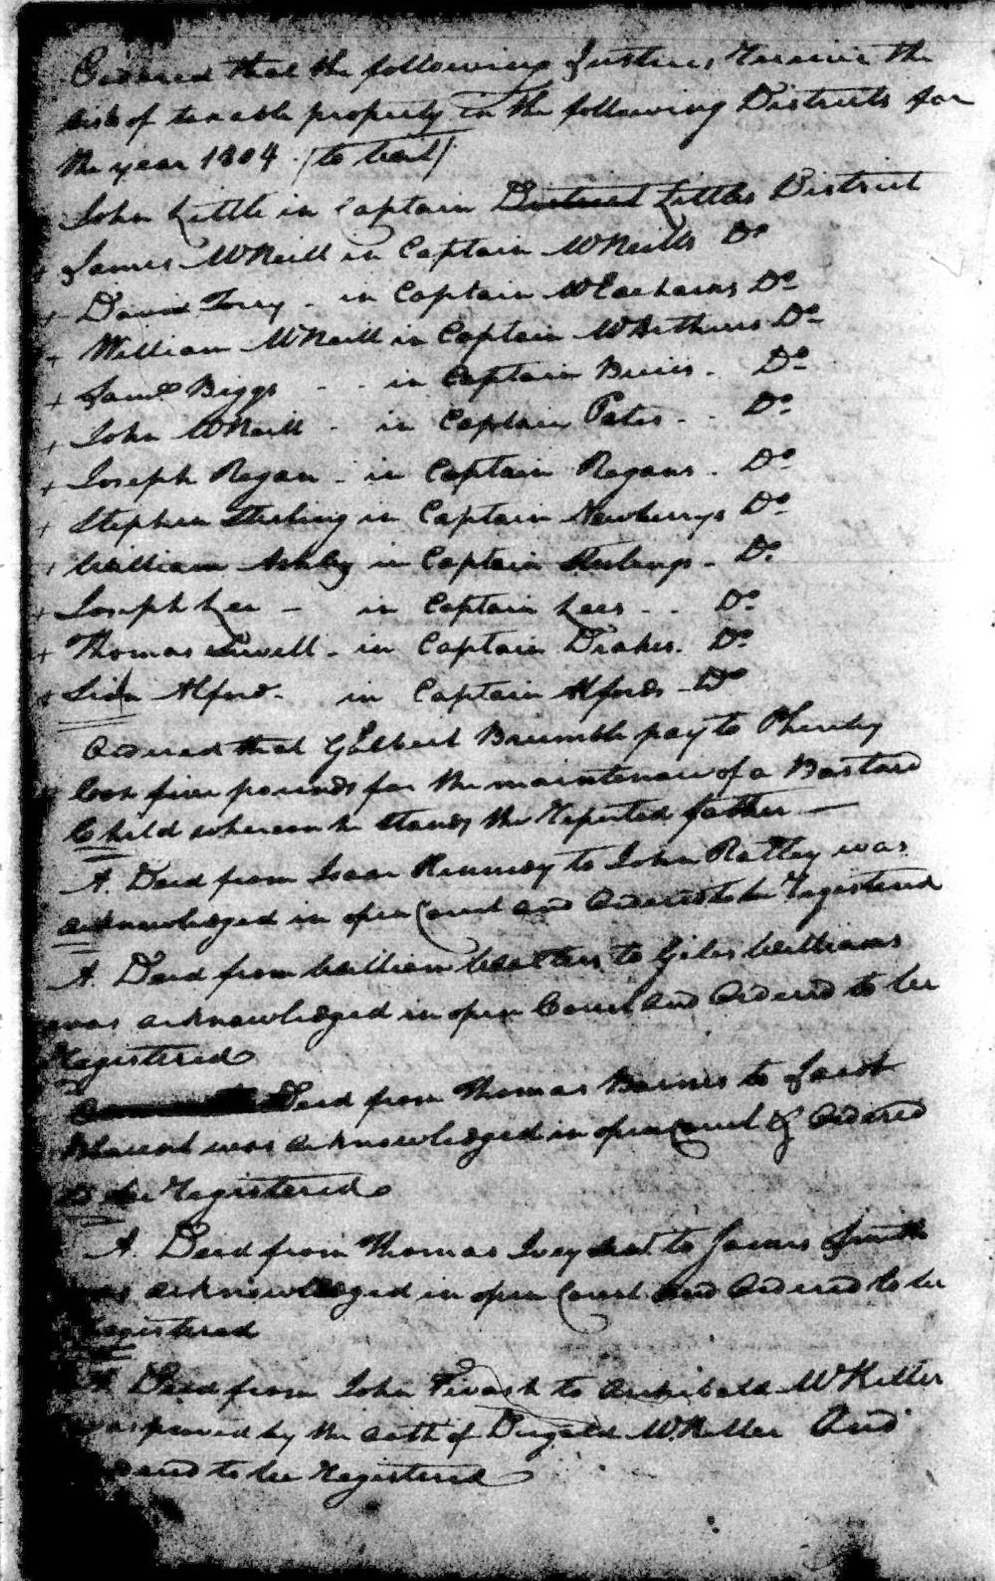 Ordered that the following Justices Receive the
list of taxable property in the following Districts for
the year 1804 (to wit)
John Little in Captain District Littles District
+ James McNeill in Captain McNeills Do
+ David Torry - in Captain McEacharns Do
+ William McNeill in Captain McArthurs Do
+ Saml Biggs - - in Captain - Do
+ John McNeill - in Captain Pates - - Do
+ Joseph Regan - in Captain Regans - Do
+ Stephen Sterling in Captain Newberrys Do
+ William Ashley in Captain - Do
+ Joseph Lee - in Captain Lees - - Do
+ Thomas in Captain Drakes. Do
+ Sion Alford - in Captain Alfords - Do
Ordered that Gilbert Brumble pay to Pheriby
Cox five pounds for the maintenance of a Bastard
Child whereon he stands the Reputed father —
A. Deed from Isaac to John Ratley was
acknowledged in open Court and Ordered to be Registered
A. Deed from William Watters to Giles Williams
was acknowledged in open Court and Ordered to be
Registered
Deed from Thomas Barnes to Jacob
was acknowledged in open Court & Ordered
to be Registered
A. Deed from Thomas Ivey to James Smith
was acknowledged in open Court and Ordered to be
Registered
A Deed from John to Archibald McKeller
was proved by the oath of Dugald McKeller And
Ordered to be Registered